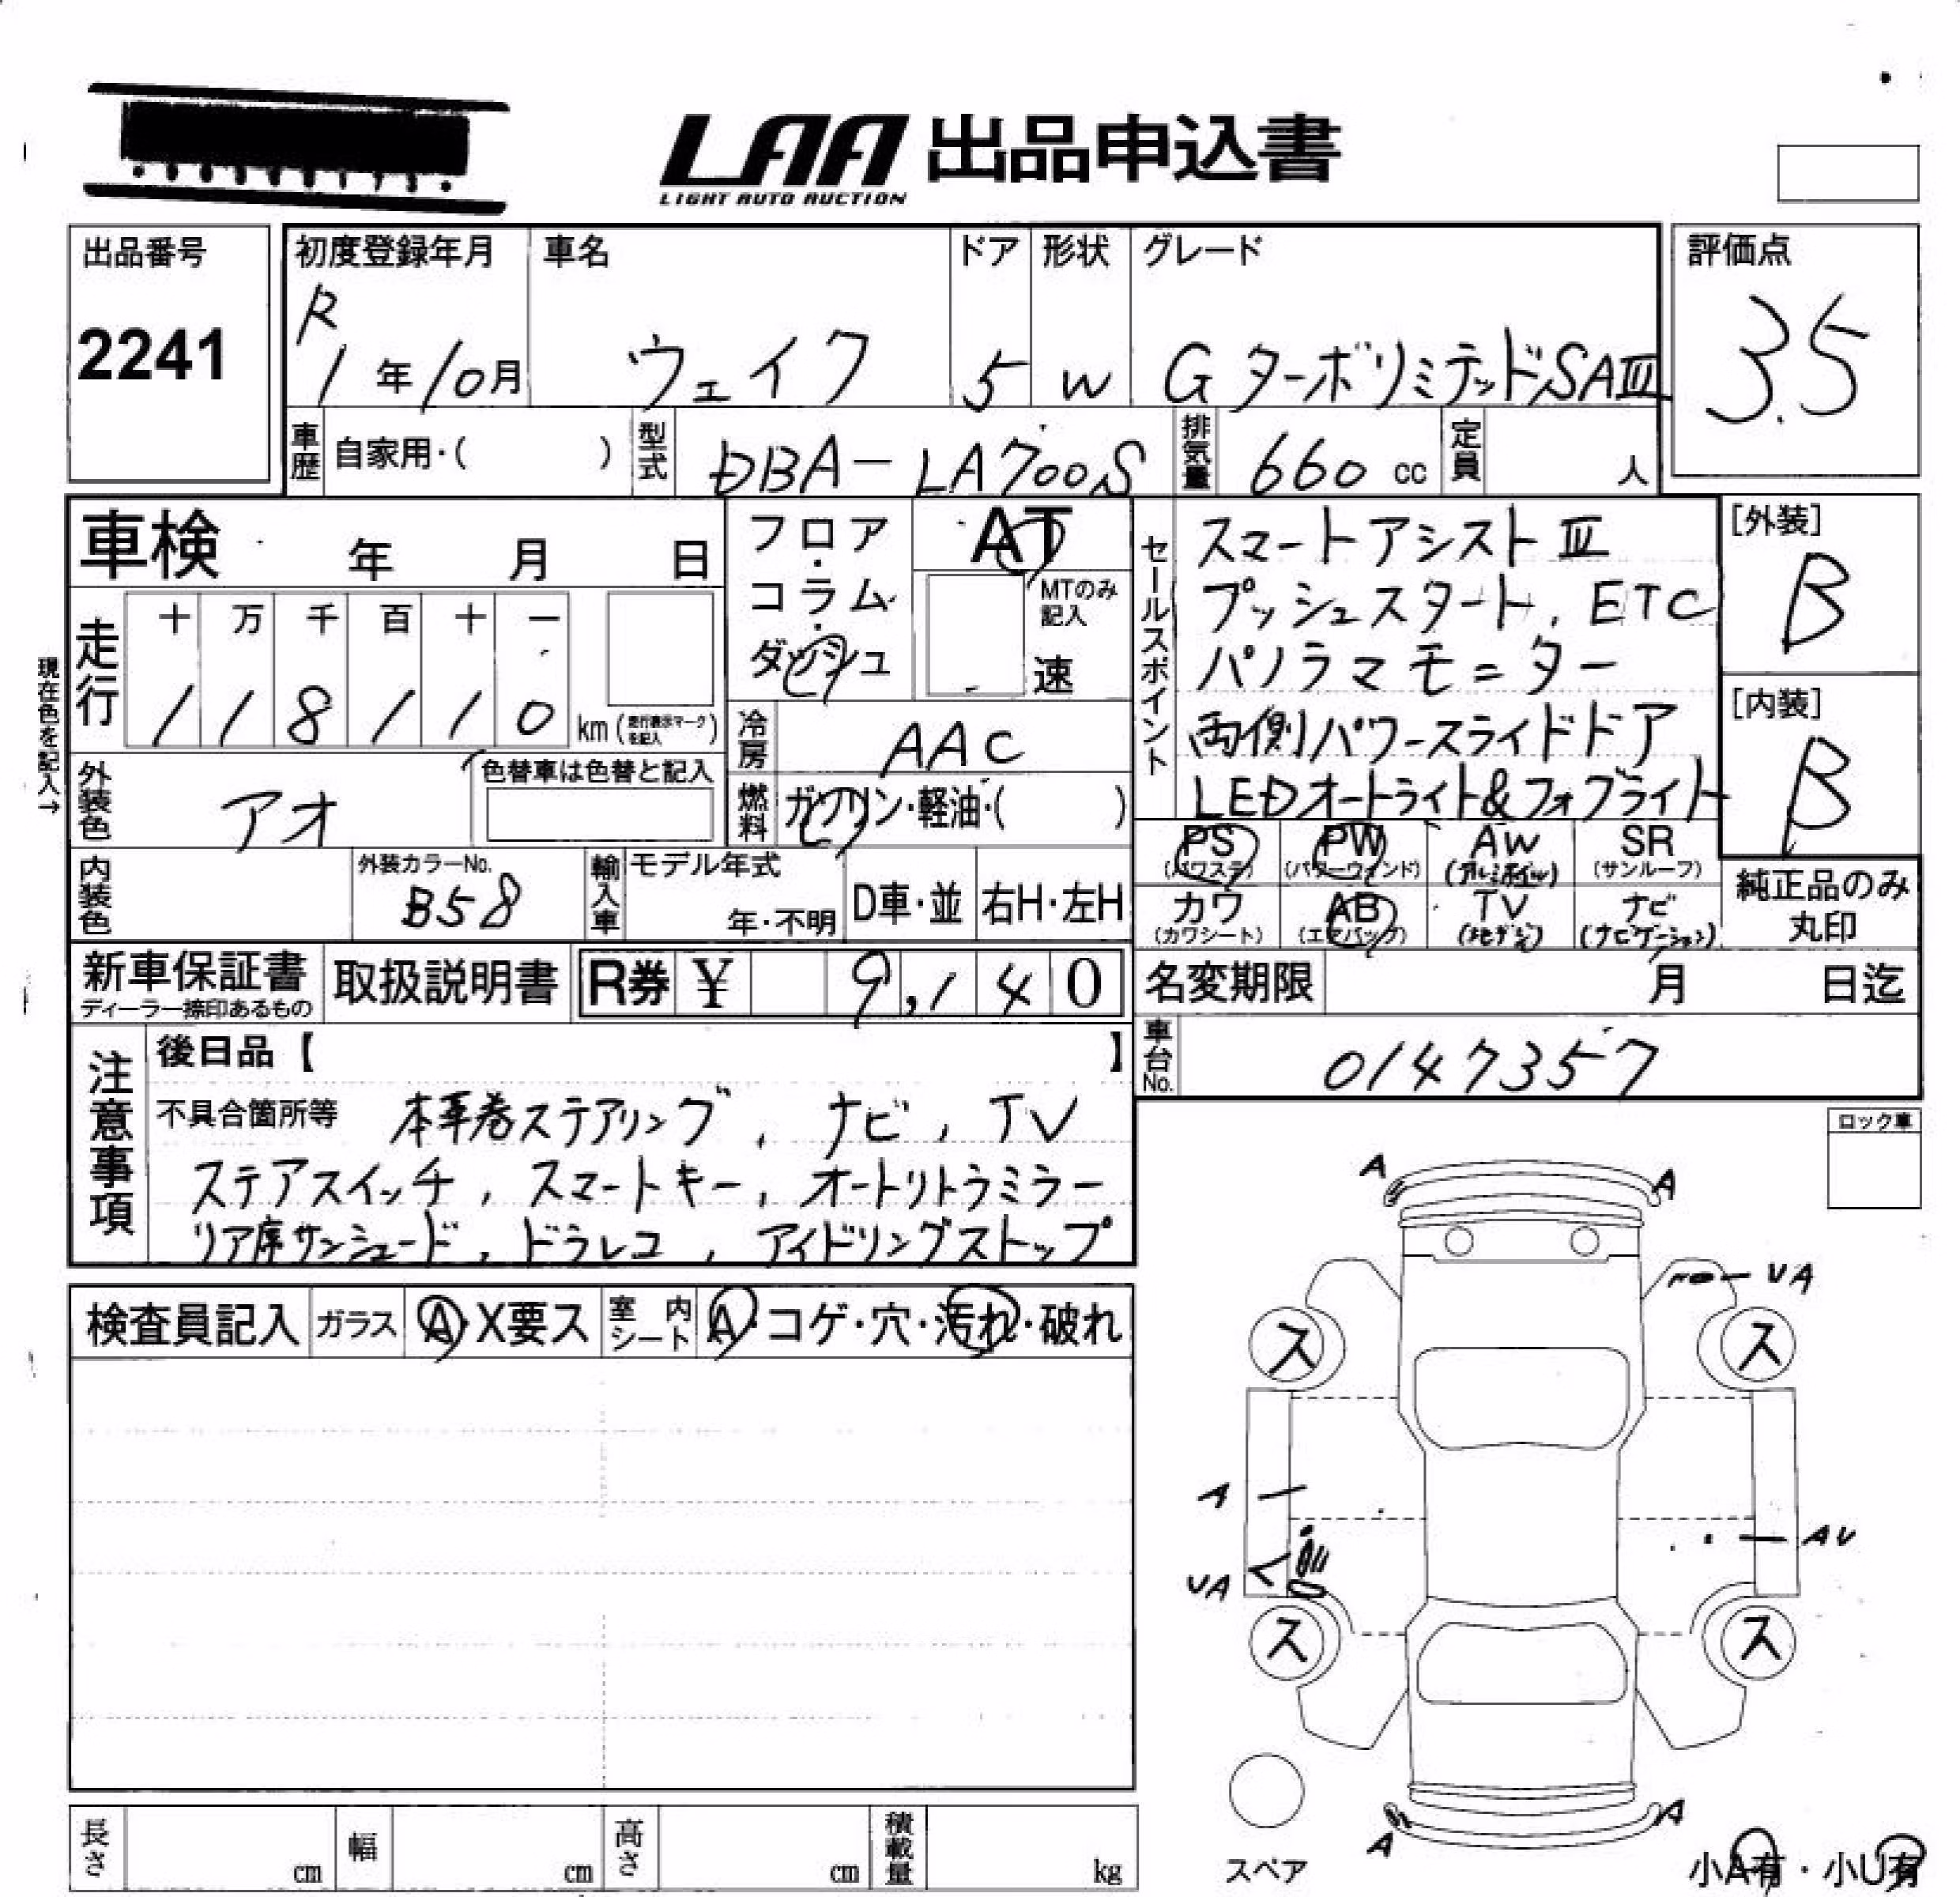 LAA 出品申込書
LIGHT AUTO AUCTION
出品番号
2241
初度登録年月
R
1年10月
車名
ウェイク
ドア
5
形状
W
グレード
GターボリミテッドSAⅢ
評価点
3.5
車歴 自家用・( )
型式 DBA-LA700S
排気量 660 cc
定員 人
車検 年 月 日
フロア・コラム・ダッシュ
AT
MTのみ記入
速
走行
十 万 千 百 十 一
1 1 8 1 1 0 km(走行表示マークを記入)
現在色を記入→
外装色 アオ
色替車は色替と記入
冷房 AAC
燃料 ガソリン・軽油・( )
セールスポイント
スマートアシストⅢ
プッシュスタート, ETC
パノラマモニター
両側パワースライドドア
LEDオートライト&フォグライト
[外装]
B
[内装]
B
PS (パワステ)
PW (パワーウィンド)
AW (アルミホイール)
SR (サンルーフ)
カワ (カワシート)
AB (エアバッグ)
TV (地デジ)
ナビ (ナビゲーション)
純正品のみ丸印
内装色
外装カラーNo.
B58
輸入車
モデル年式
年・不明
D車・並
右H・左H
新車保証書
ディーラー捺印あるもの
取扱説明書
R券 ¥ 9,140
名変期限 月 日迄
車台No. 0147357
注意事項
後日品【 】
不具合箇所等 本革巻ステアリング, ナビ, TV
ステアスイッチ, スマートキー, オートリトラミラー
リア席サンシェード, ドラレコ, アイドリングストップ
ロック車
検査員記入
ガラス A・X要ス
室内シート A・コゲ・穴・汚れ・破れ
A A
VA
ス ス
A
AV
VA
ス ス
A A
スペア
小A有・小U有
長さ cm
幅 cm
高さ cm
積載量 kg